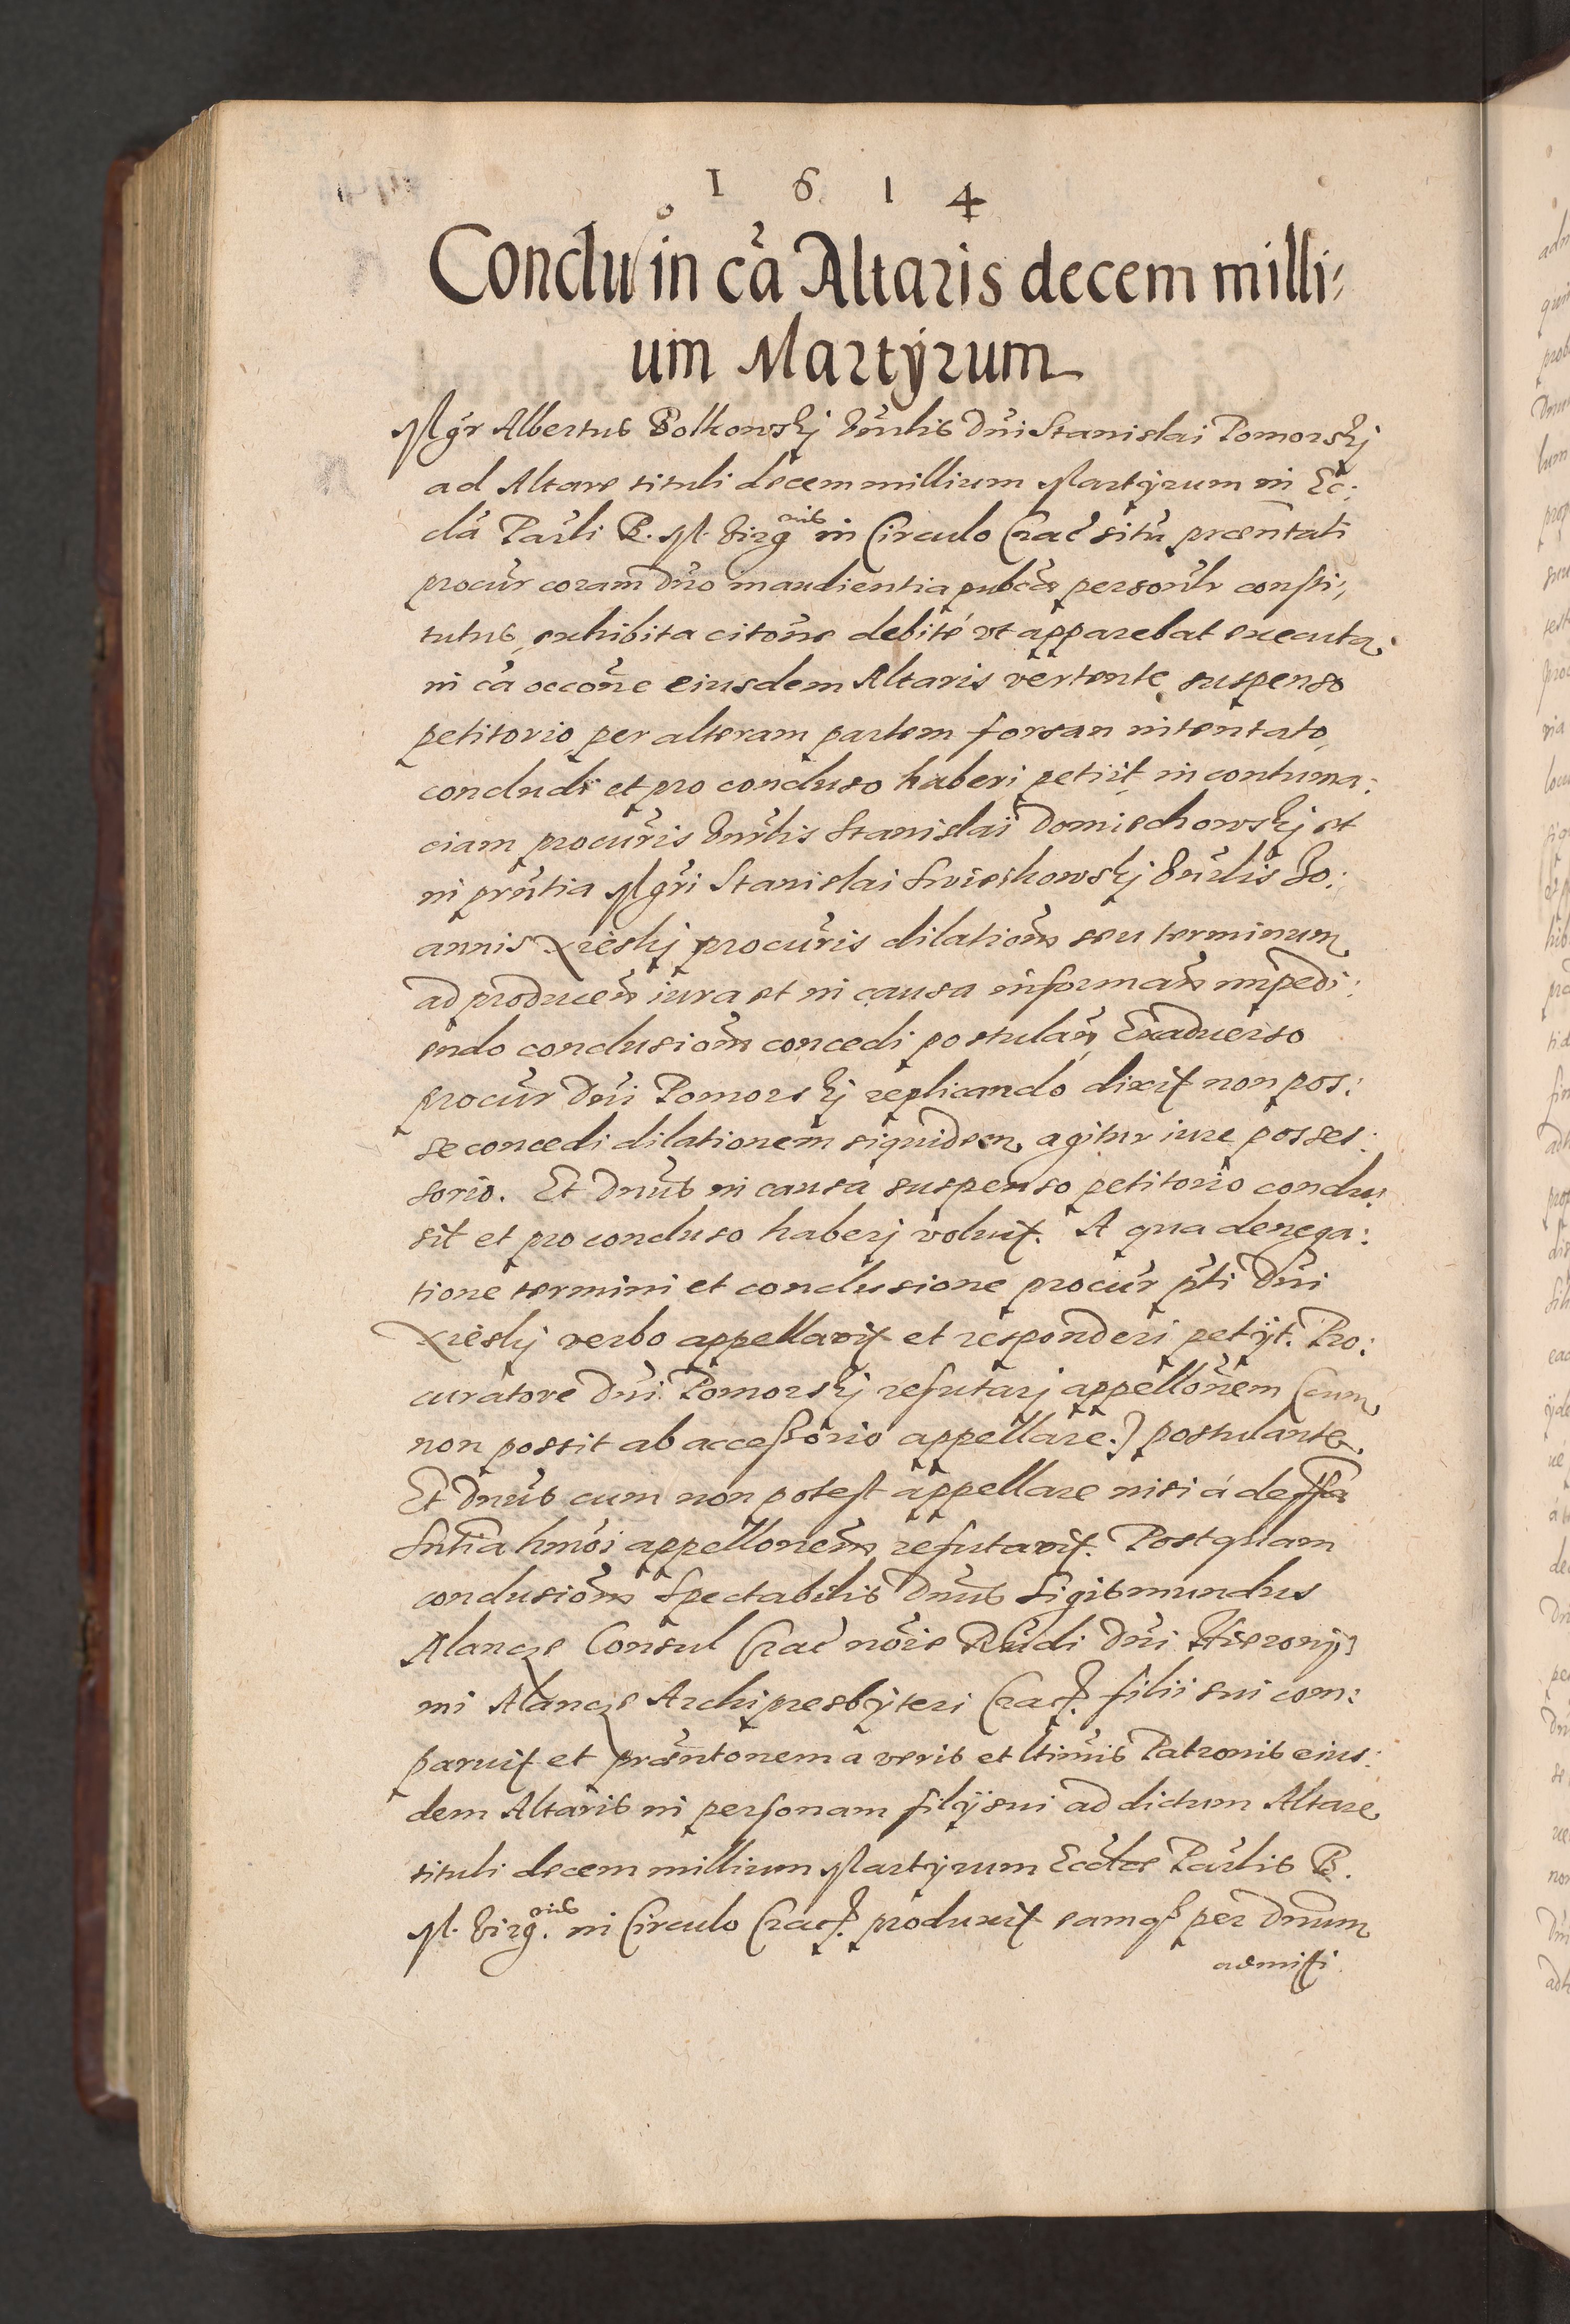 1614
Conclu° in cā Altaris decem milli,
um Martÿrum
Mgr̃ Albertus Bolkowskj Vnrl̃is Dnĩ Stanislai Pomorskj
ad Altare tituli decem millium Martÿrum in Ec:
cl̃ã Par̃li B. M. Virgnis in Circulo Crac̃ sitũ præñtati
procur̃ coram Dño in audientia pub̃ca personl̃r consti,
tutus, exhibita citoñe debite vt apparebat executa,
in cã occoñe eiusdem Altaris vertente suspenso
petitorio per alteram partem forsan intentato,
concludi et pro concluso haberi petiit, in contuma:
ciam procur̃is Vnr̃lis Stanislai Domiechowskj et
in prñtia Mgr̃i Stanislai Swieskowskj Vnr̃lis Jo:
annis Xieskj procur̃is dilationẽ seu terminum
ad producen̄ iura et in causa informan̄ impedi:
endo conclusionẽ concedi postulan̄, Exaduerso
procur̃ Dñi Pomorskj replicando dixit non pos:
se concedi dilationem siquidem agitur iure posses:
sorio. Et Dnũs in causa suspenso petitorio conclu,
sit et pro concluso haberj voluit. A qua denega:
tione termini et conclusione procur̃ pt̃i Dñi
Xieskj verbo appellavit et responderi petÿt. Pro:
curatore Dñi Pomorskj refutarj appelloñem (cum
non possit ab accessorio appellare.) postulante.
Et Dnũs cum non potest appellare nisi á deffa
snt̃ia hmõi appellonem̃ refutavit. Post quam
conclusionẽ Spectabilis Dnũs Sigismundus
Alancze Consul Crac̃ noĩe Rñdi Dñi Hieronÿ,
mi Alancze Archipresbÿteri Crac. filii sui com:
paruit et præñtonem a veris et ltimĩs Patronis eius:
dem Altaris in personam filÿ sui ad dictum Altare
tituli decem millium Martÿrum Eccl̃æ Par̃lis B.
M. Virg.nis in Circulo Crac. produxit eamq3 per Dnum
admitti.